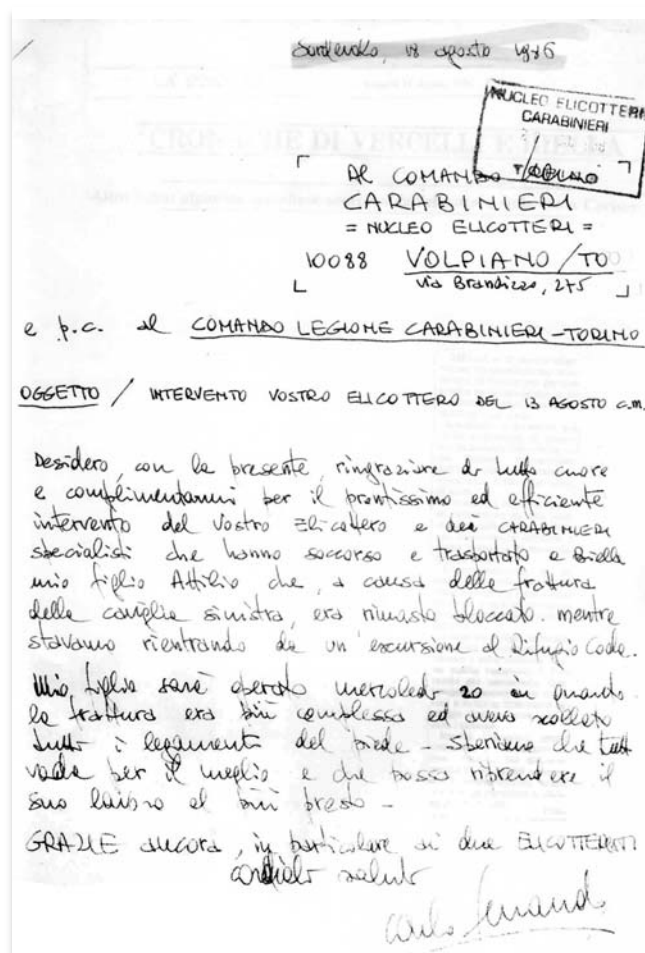 Sordevolo, 18 agosto 1986
NUCLEO ELICOTTERI
CARABINIERI
TORINO
Al COMANDO
CARABINIERI
= NUCLEO ELICOTTERI =
10088 VOLPIANO/TO
via Brandizzo, 275
e p.c. al COMANDO LEGIONE CARABINIERI-TORINO
OGGETTO / INTERVENTO VOSTRO ELICOTTERO DEL 13 AGOSTO c.m.
Desidero, con la presente, ringraziare di tutto cuore
e complimentarmi per il prontissimo ed efficiente
intervento del Vostro Elicottero e dei CARABINIERI
specialisti che hanno soccorso e trasportato a Biella
mio figlio Attilio che, a causa della frattura
della caviglia sinistra, era rimasto bloccato mentre
stavamo rientrando da un'escursione al Rifugio Coda.
Mio figlio sarà operato mercoledì 20 in quando
la frattura era più complessa ed aveva scollato
tutti i legamenti del piede - Speriamo che tutto
vada per il meglio e che possa riprendere il
suo lavoro al più presto -
GRAZIE ancora, in particolare ai due ELICOTTERISTI
cordiali saluti
Carlo